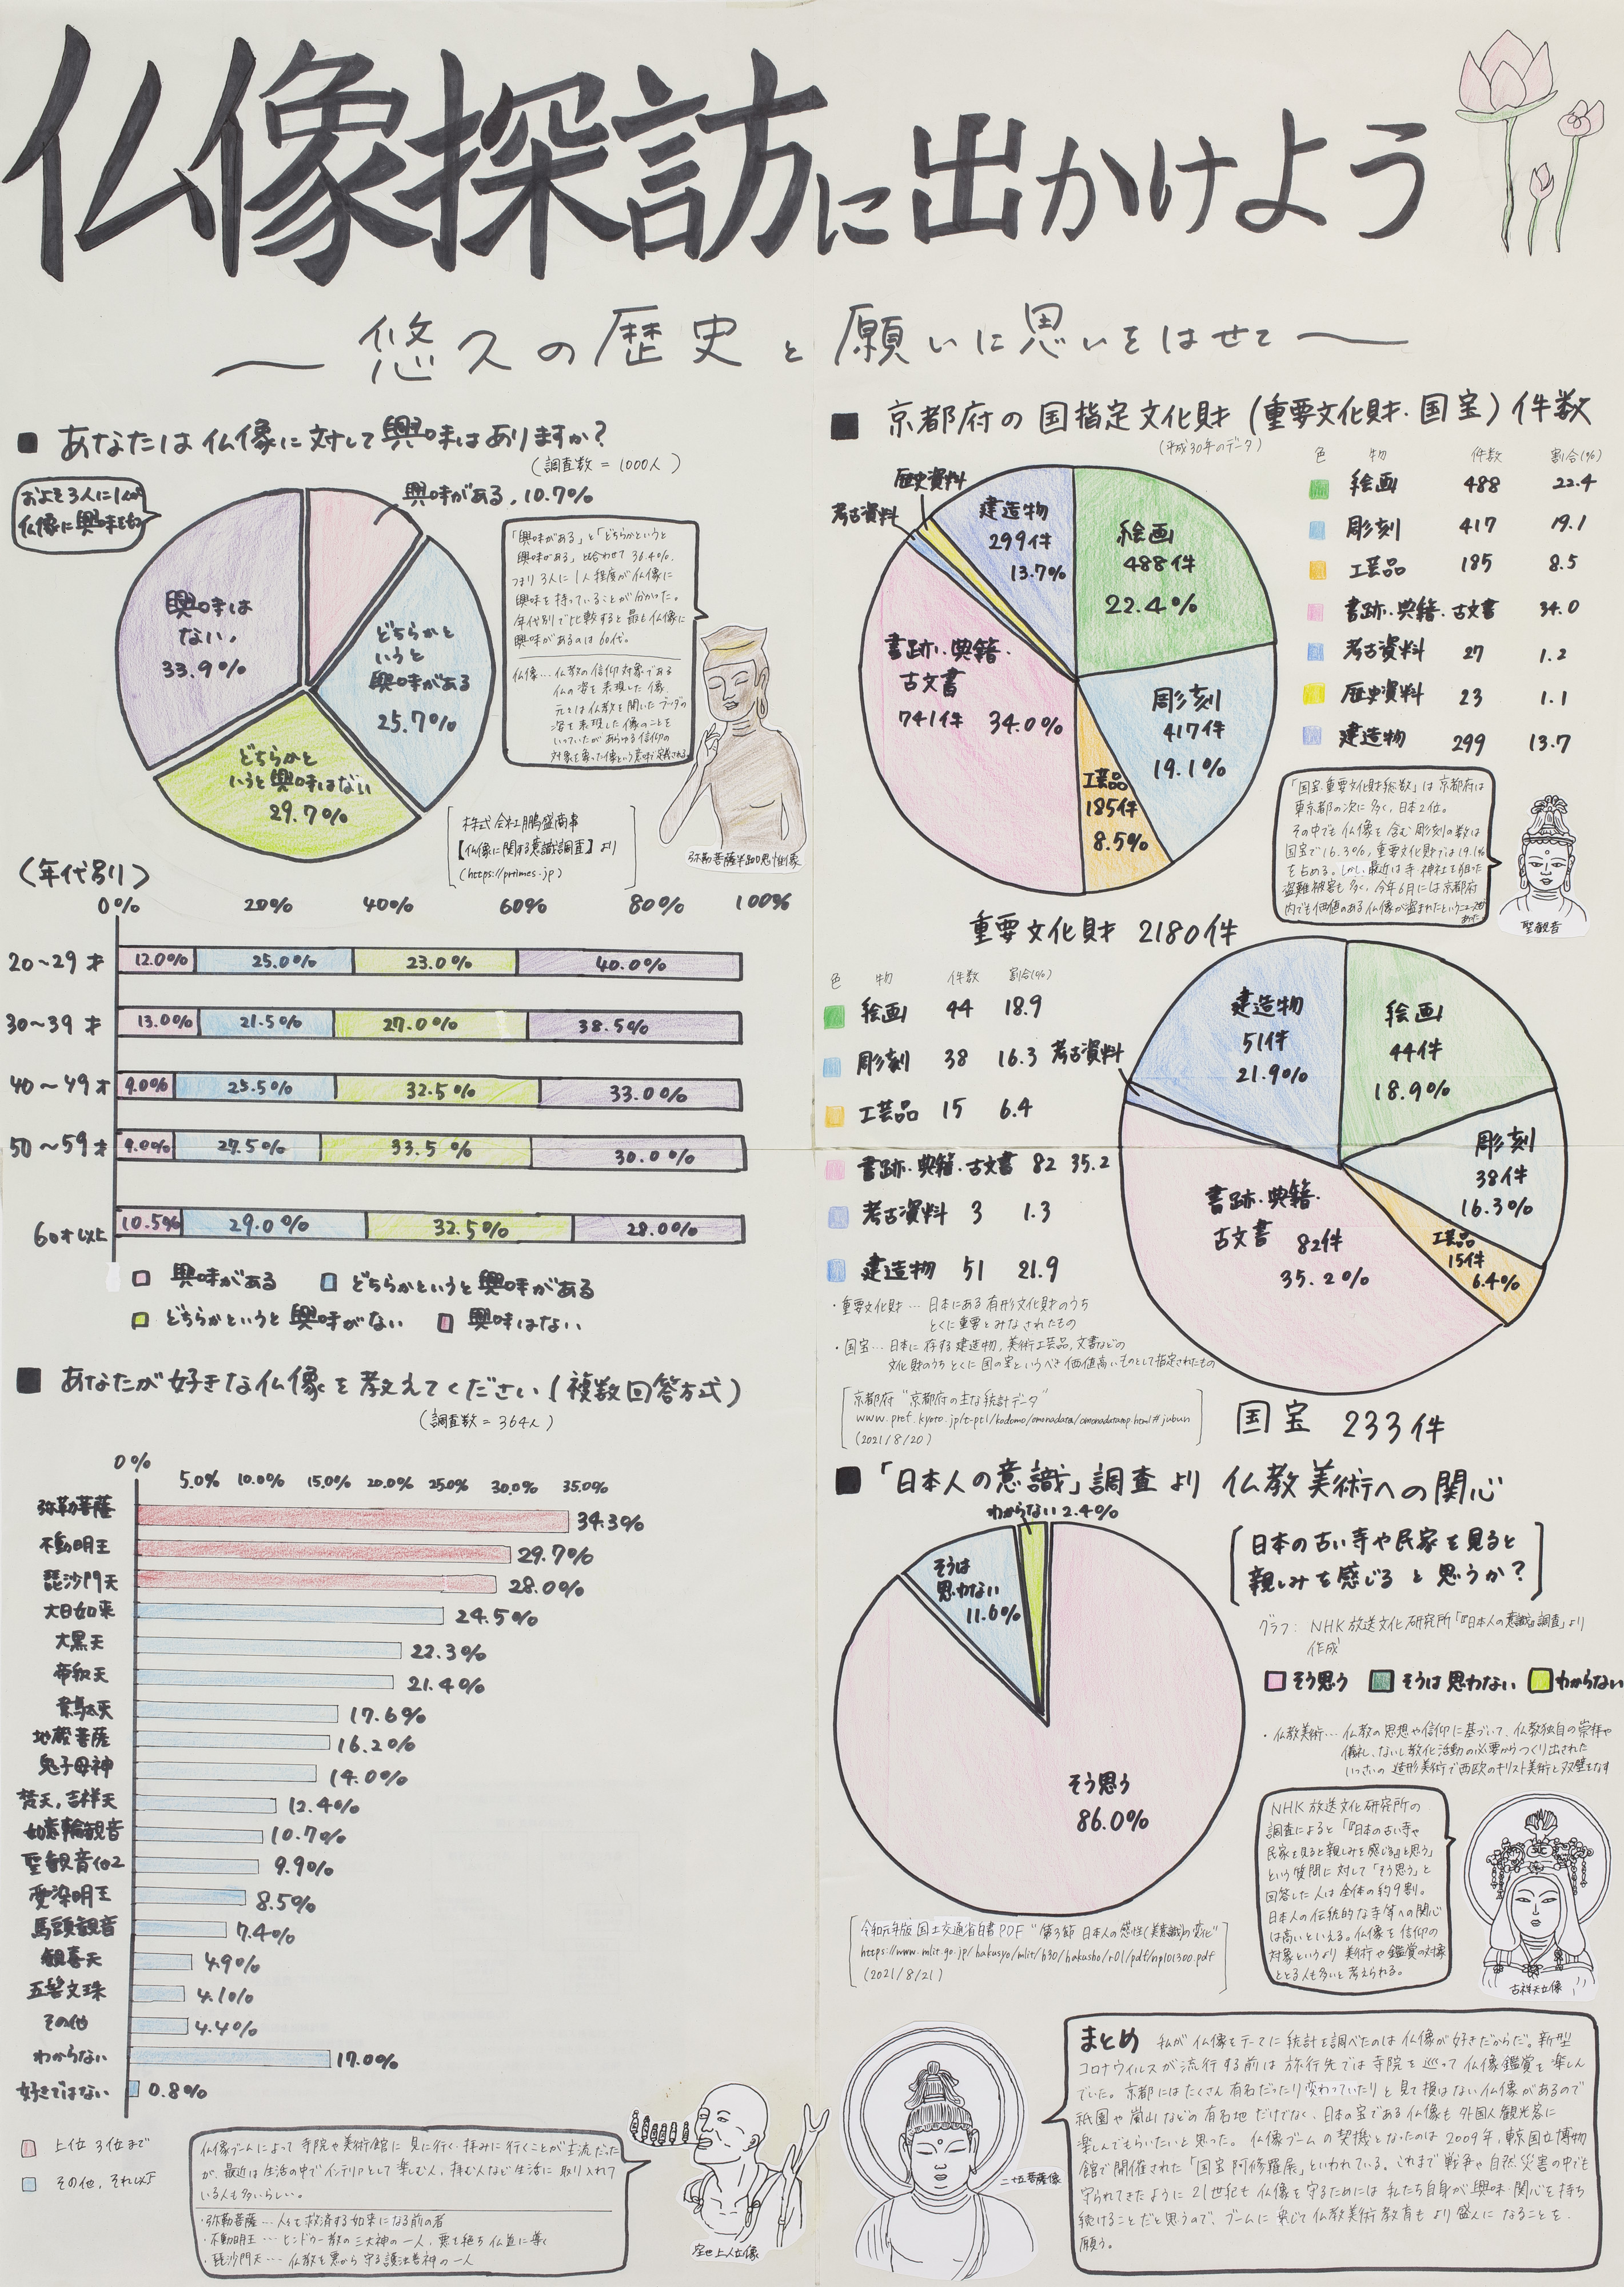 仏像探訪に出かけよう
〜悠久の歴史と願いに思いをはせて〜
■ あなたは仏像に対して興味はありますか?
(調査数=1000人)
およそ3人に1人が
仏像に興味を
興味がある, 10.7%
どちらかと
いうと
興味がある
25.7%
どちらかと
いうと興味はない
29.7%
興味は
ない,
33.9%
「興味がある」と「どちらかというと
興味がある」と合わせて36.4%.
つまり3人に1人程度が仏像に
興味を持っていることが分かった。
年代別で比較すると最も仏像に
興味があるのは60代。
仏像…仏教の信仰対象である
仏の姿を表現した像.
元々は仏教を開いたブッダの
姿を表現した像のことを
いっていたがあらゆる信仰の
対象を専った像という意味で定義される
弥勒菩薩半跏思惟像
株式会社鵬盛商事
【仏像に関する意識調査】より
(https://prtimes.jp)
(年代別)
0% 20% 40% 60% 80% 100%
20~29才 12.0% 25.0% 23.0% 40.0%
30~39才 13.0% 21.5% 27.0% 38.5%
40~49才 9.0% 25.5% 32.5% 33.0%
50~59才 9.0% 27.5% 33.5% 30.0%
60才以上 10.5% 29.0% 32.5% 28.0%
興味がある どちらかというと興味がある
どちらかというと興味がない 興味はない
■ あなたが好きな仏像を教えてください(複数回答方式)
(調査数=364人)
0% 5.0% 10.0% 15.0% 20.0% 25.0% 30.0% 35.0%
弥勒菩薩 34.3%
不動明王 29.7%
毘沙門天 28.0%
大日如来 24.5%
大黒天 22.3%
帝釈天 21.4%
韋駄天 17.6%
地蔵菩薩 16.2%
鬼子母神 14.0%
梵天,吉祥天 12.4%
如意輪観音 10.7%
聖観音他2 9.9%
愛染明王 8.5%
馬頭観音 7.4%
歓喜天 4.9%
五髻文珠 4.1%
その他 4.4%
わからない 17.0%
好きではない 0.8%
上位3位まで
その他,それ以下
仏像ブームによって寺院や美術館に見に行く・拝みに行くことが主流だった
が、最近は生活の中でインテリアとして楽しむ人、拝む人など生活に取り入れて
いる人も多いらしい。
・弥勒菩薩…人々を救済する如来になる前の者
・不動明王…ヒンドゥー教の三大神の一人、悪を絶ち仏道に導く
・毘沙門天…仏教を悪から守る護法善神の一人
空也上人立像
■ 京都府の国指定文化財(重要文化財・国宝)件数
(平成30年のデータ)
絵画
488件
22.4%
彫刻
417件
19.1%
工芸品
185件
8.5%
書跡・典籍・
古文書
741件 34.0%
考古資料
歴史資料
建造物
299件
13.7%
重要文化財 2180件
色 物 件数 割合(%)
絵画 488 22.4
彫刻 417 19.1
工芸品 185 8.5
書跡・典籍・古文書 34.0
考古資料 27 1.2
歴史資料 23 1.1
建造物 299 13.7
「国宝・重要文化財総数」は京都府は
東京都の次に多く、日本2位。
その中でも仏像を含む彫刻の数は
国宝で16.3%,重要文化財では19.1%
を占める。しかし、最近は寺・神社を狙った
盗難被害も多く、今年6月には京都府
内でも価値のある仏像が盗まれたというニュースが
あった
聖観音
色 物 件数 割合(%)
絵画 44 18.9
彫刻 38 16.3
工芸品 15 6.4
書跡・典籍・古文書 82 35.2
考古資料 3 1.3
建造物 51 21.9
絵画
44件
18.9%
彫刻
38件
16.3%
工芸品
15件
6.4%
書跡・典籍・
古文書 82件
35.2%
考古資料
建造物
51件
21.9%
国宝 233件
・重要文化財…日本にある有形文化財のうち
とくに重要とみなされたもの
・国宝…日本に存する建造物,美術工芸品,文書などの
文化財のうちとくに国の宝というべき価値高いものとして指定されたもの
京都府"京都府の主な統計データ"
www.pref.kyoto.jp/t-ptl/kodomo/omonadata/omonadatamp.html#jubun
(2021/8/20)
■ 「日本人の意識」調査より 仏教美術への関心
わからない 2.4%
そうは
思わない
11.6%
そう思う
86.0%
日本の古い寺や民家を見ると
親しみを感じると思うか?
グラフ:NHK放送文化研究所「『日本人の意識』調査」より
作成
そう思う そうは思わない わからない
・仏教美術…仏教の思想や信仰に基づいて、仏教独自の崇拝や
儀礼、ないし教化活動の必要からつくり出された
いっさいの造形美術で西欧のキリスト美術と双璧をなす
NHK放送文化研究所の
調査によると「『日本の古い寺や
民家を見ると親しみを感じる』と思う」
という質問に対して「そう思う」と
回答した人は全体の約9割。
日本人の伝統的な寺等への関心
は高いといえる。仏像を信仰の
対象というより美術や鑑賞の対象
ととる人も多いと考えられる。
吉祥天立像
令和元年版 国土交通省白書PDF "第3節 日本人の感性(美意識)の変化"
https://www.mlit.go.jp/hakusyo/mlit/h30/hakusho/r01/pdf/np101300.pdf
(2021/8/21)
二十五菩薩像
まとめ 私が仏像をテーマに統計を調べたのは仏像が好きだからだ。新型
コロナウイルスが流行する前は旅行先では寺院を巡って仏像鑑賞を楽しん
でいた。京都にはたくさん有名だったり変わっていたりと見て損はない仏像があるので
祇園や嵐山などの有名地だけでなく、日本の宝である仏像も外国人観光客に
楽しんでもらいたいと思った。仏像ブームの契機となったのは2009年,東京国立博物
館で開催された「国宝 阿修羅展」といわれている。これまで戦争や自然災害の中でも
守られてきたように21世紀も仏像を守るためには私たち自身が興味・関心を持ち
続けることだと思うので、ブームに乗じて仏教美術教育もより盛んになることを
願う。